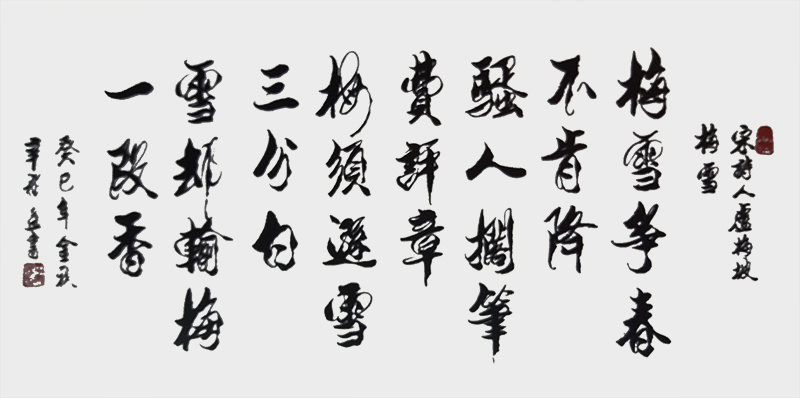 宋詩人盧梅坡
梅雪
梅雪爭春
不肯降
騷人擱筆
費評章
梅須遜雪
三分白
雪却輸梅
一段香
癸巳年金秋